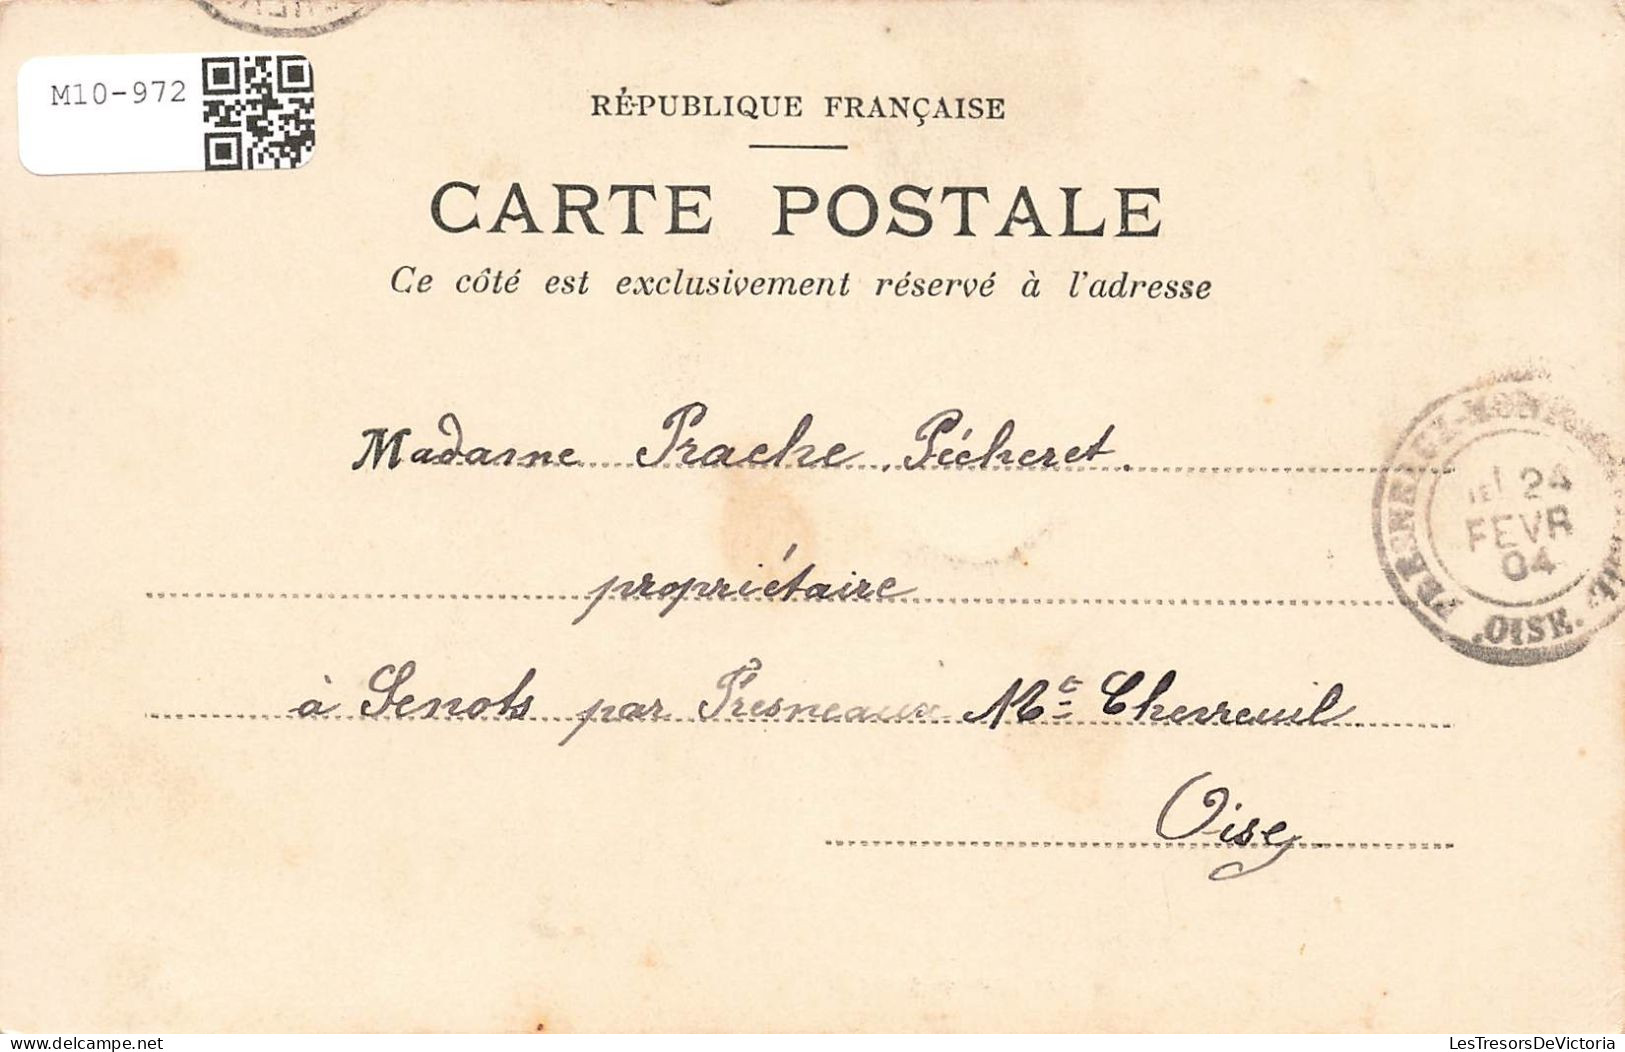 M10-972
RÉPUBLIQUE FRANÇAISE
CARTE POSTALE
Ce côté est exclusivement réservé à l'adresse
Madame Prache Pécheret.
propriétaire
à Senots par Fresneaux Mt Chevreuil
Oise
24
FEVR
04
OISE
LesTresorsDeVictoria
delcampe.net